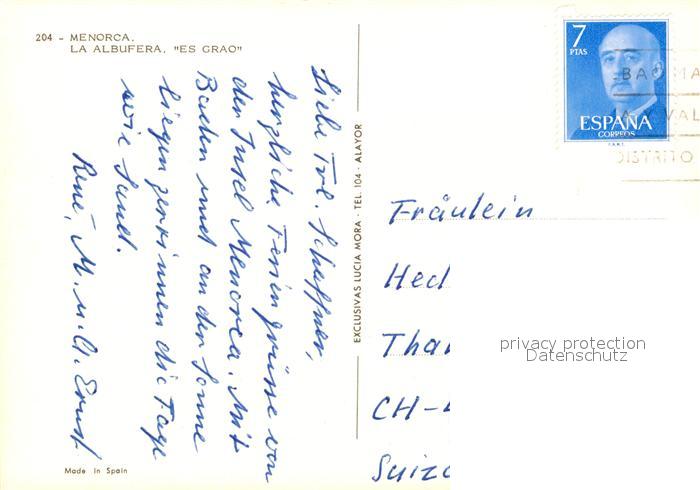 204 - MENORCA.
LA ALBUFERA, "ES GRAO"
Liebe Frl. Scheffner,
herzliche Feriengrüsse von
der Insel Menorca. Mit
Baden und an der Sonne
liegen zerrinnen die Tage
wie Sand.
René, M. u. A. Ernst
Made in Spain
EXCLUSIVAS LUCIA MORA - TEL. 104 - ALAYOR
7
PTAS
ESPAÑA
CORREOS
F.N.M.T.
DISTRITO
Fräulein
Hed
CH-
privacy protection
Datenschutz